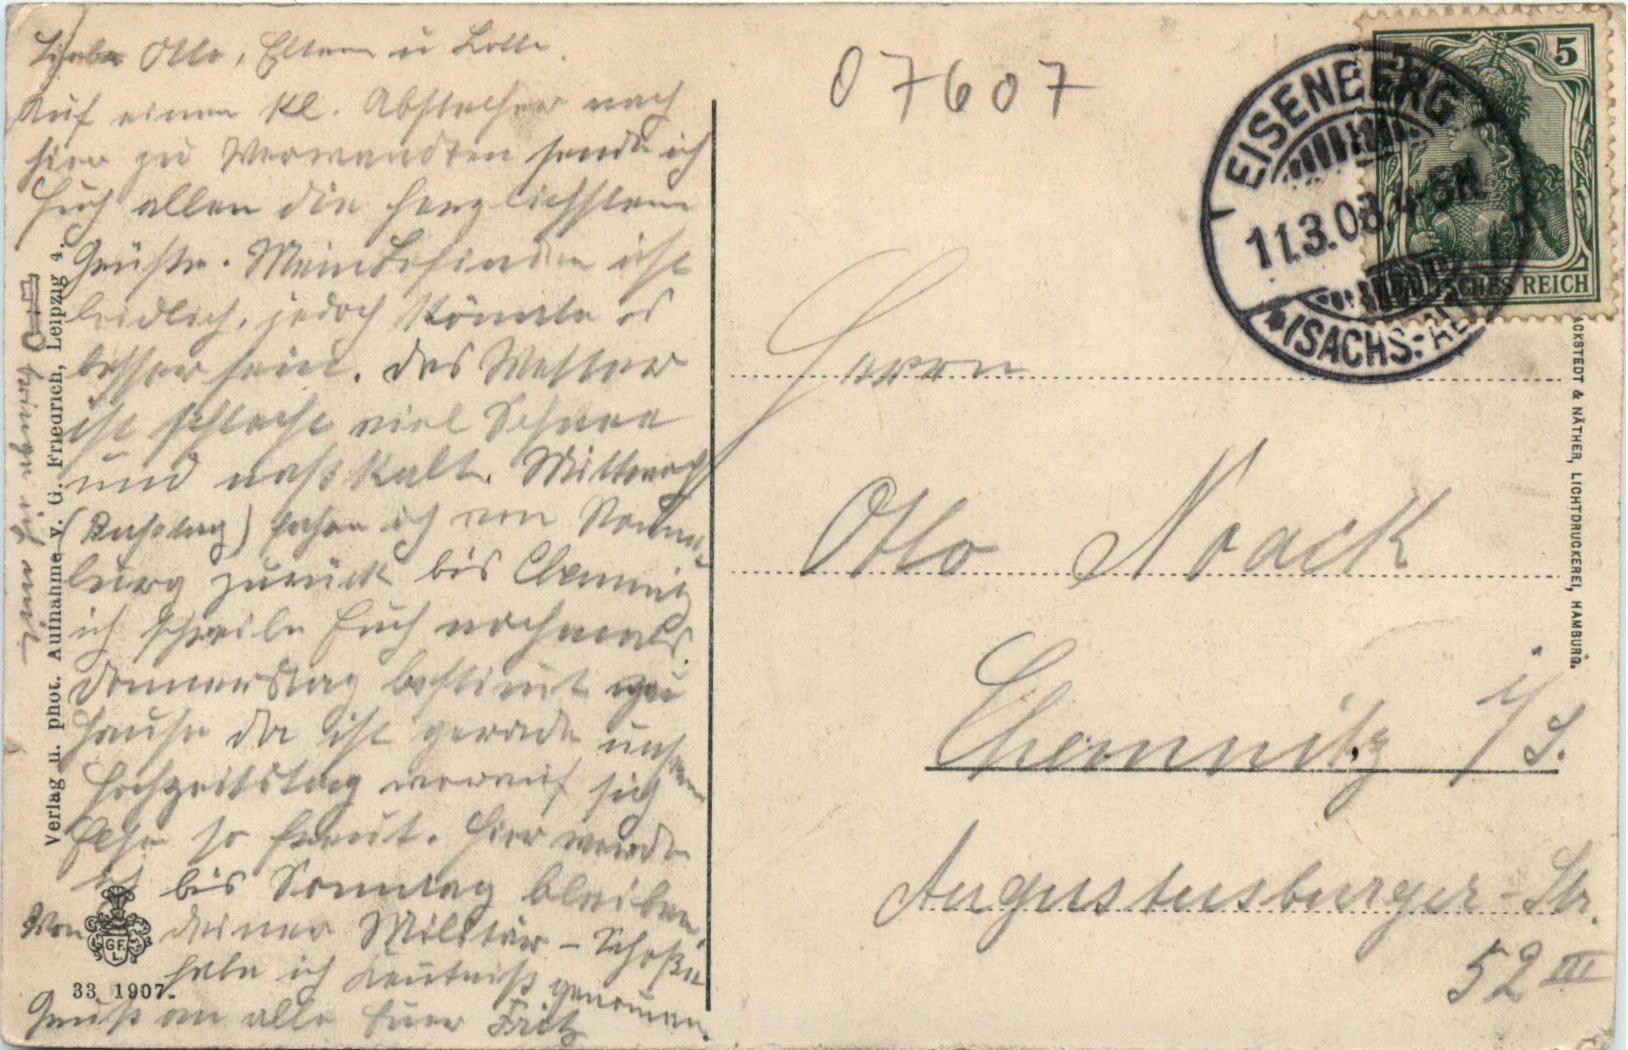 Liebe Otto, Eltern u Lotte.
Auf einem kl. Abstecher nach
hier zu Verwandten sende ich
Euch allen die herzlichsten
Grüße. Mein Befinden ist
leidlich, jedoch könnte es
besser sein. Das Wetter
ist schlecht viel Schnee
und naßkalt. Mittwoch
(Bußtag) fahre ich von Naum-
burg zurück bis Chemnitz
ich schreibe Euch nochmals.
Donnerstag bestimt zu
Hause da ist gerade unser
Hochzeitstag worauf sich
Else so freut. Hier werde
ich bis Sonntag bleiben.
Von deiner Militär-
habe ich Kentniß genomen.
Gruß an alle Euer Fritz
bringe ich mit
07607
EISENBERG
11.3.08. 4-5N.
*(SACHS.-ALT
5
5
DEUTSCHES REICH
Herrn
Otto Noack
Chemnitz i/S.
Augustusburger-Str.
52 III
Verlag u. phot. Aufnahme v. G. Friedrich, Leipzig 4.
GF
L
33 1907.
ACKSTEDT & NÄTHER, LICHTDRUCKEREI, HAMBURG.